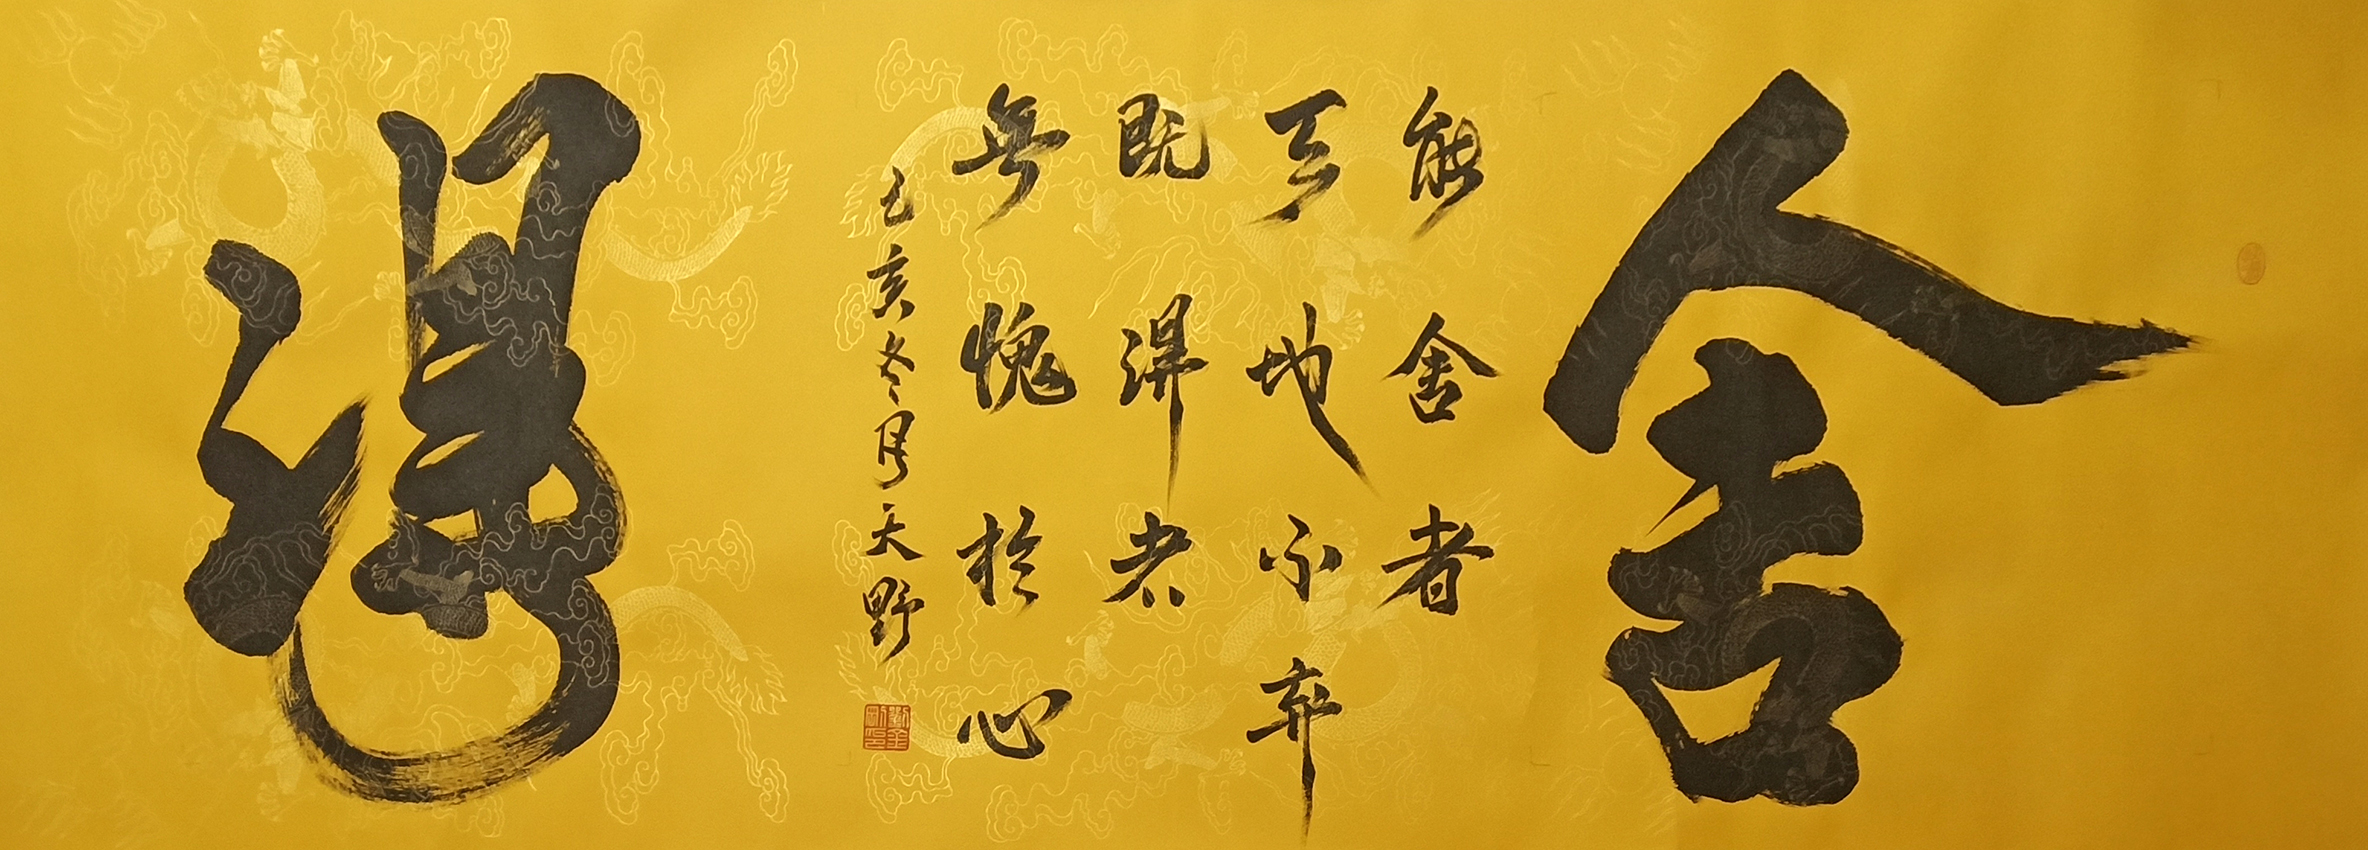 舍
能舍者
天地不弃
既得者
無愧於心
己亥冬月天野
得